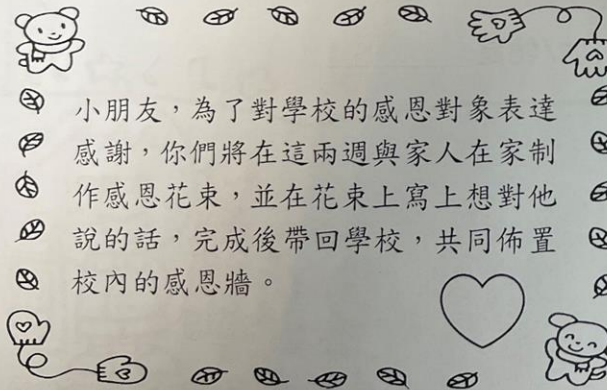 小朋友，為了對學校的感恩對象表達
感謝，你們將在這兩週與家人在家制
作感恩花束，並在花束上寫上想對他
說的話，完成後帶回學校，共同佈置
校內的感恩牆。